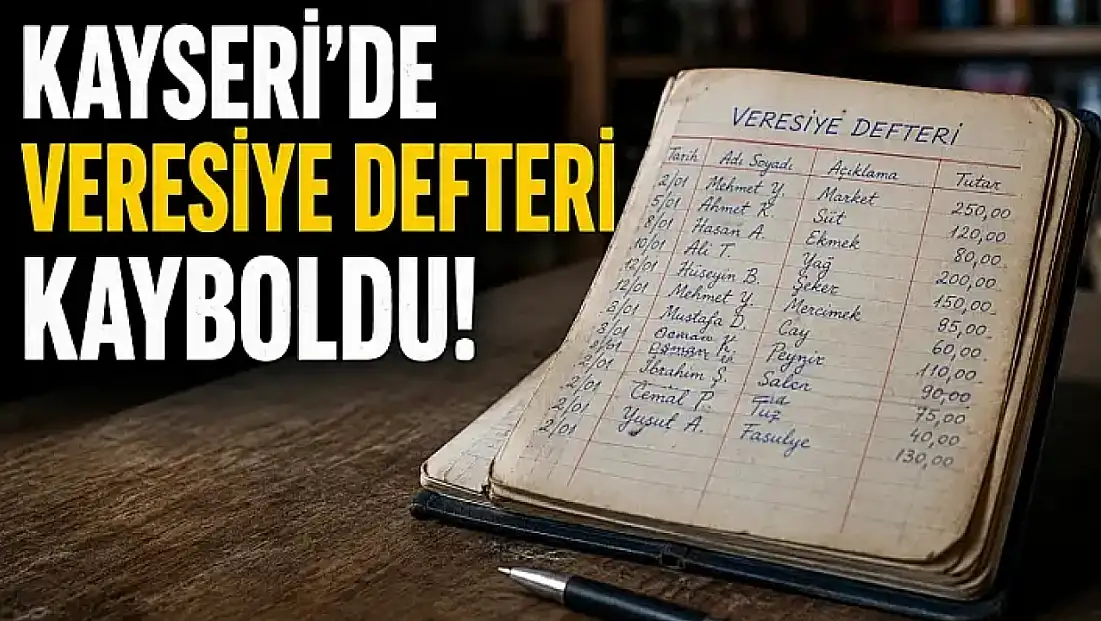 KAYSERİ'DE
VERESİYE DEFTERİ
KAYBOLDU!
VERESİYE DEFTERİ
Tarih Adı Soyadı Açıklama Tutar
2/01 Mehmet Y. Market 250,00
5/01 Ahmet K. Süt 120,00
8/01 Hasan A. Ekmek 80,00
10/01 Ali T. Yağ 200,00
12/01 Hüseyin B. Şeker 150,00
12/01 Mehmet Y. Mercimek 95,00
8/01 Mustafa D. Çay 60,00
8/01 Osman Peynir 110,00
2/01 Osman Salca 90,00
2/01 İbrahim Ş. 75,00
2/01 Cemal P. Tuz 40,00
2/01 Yusuf A. Fasulye 130,00
2/01